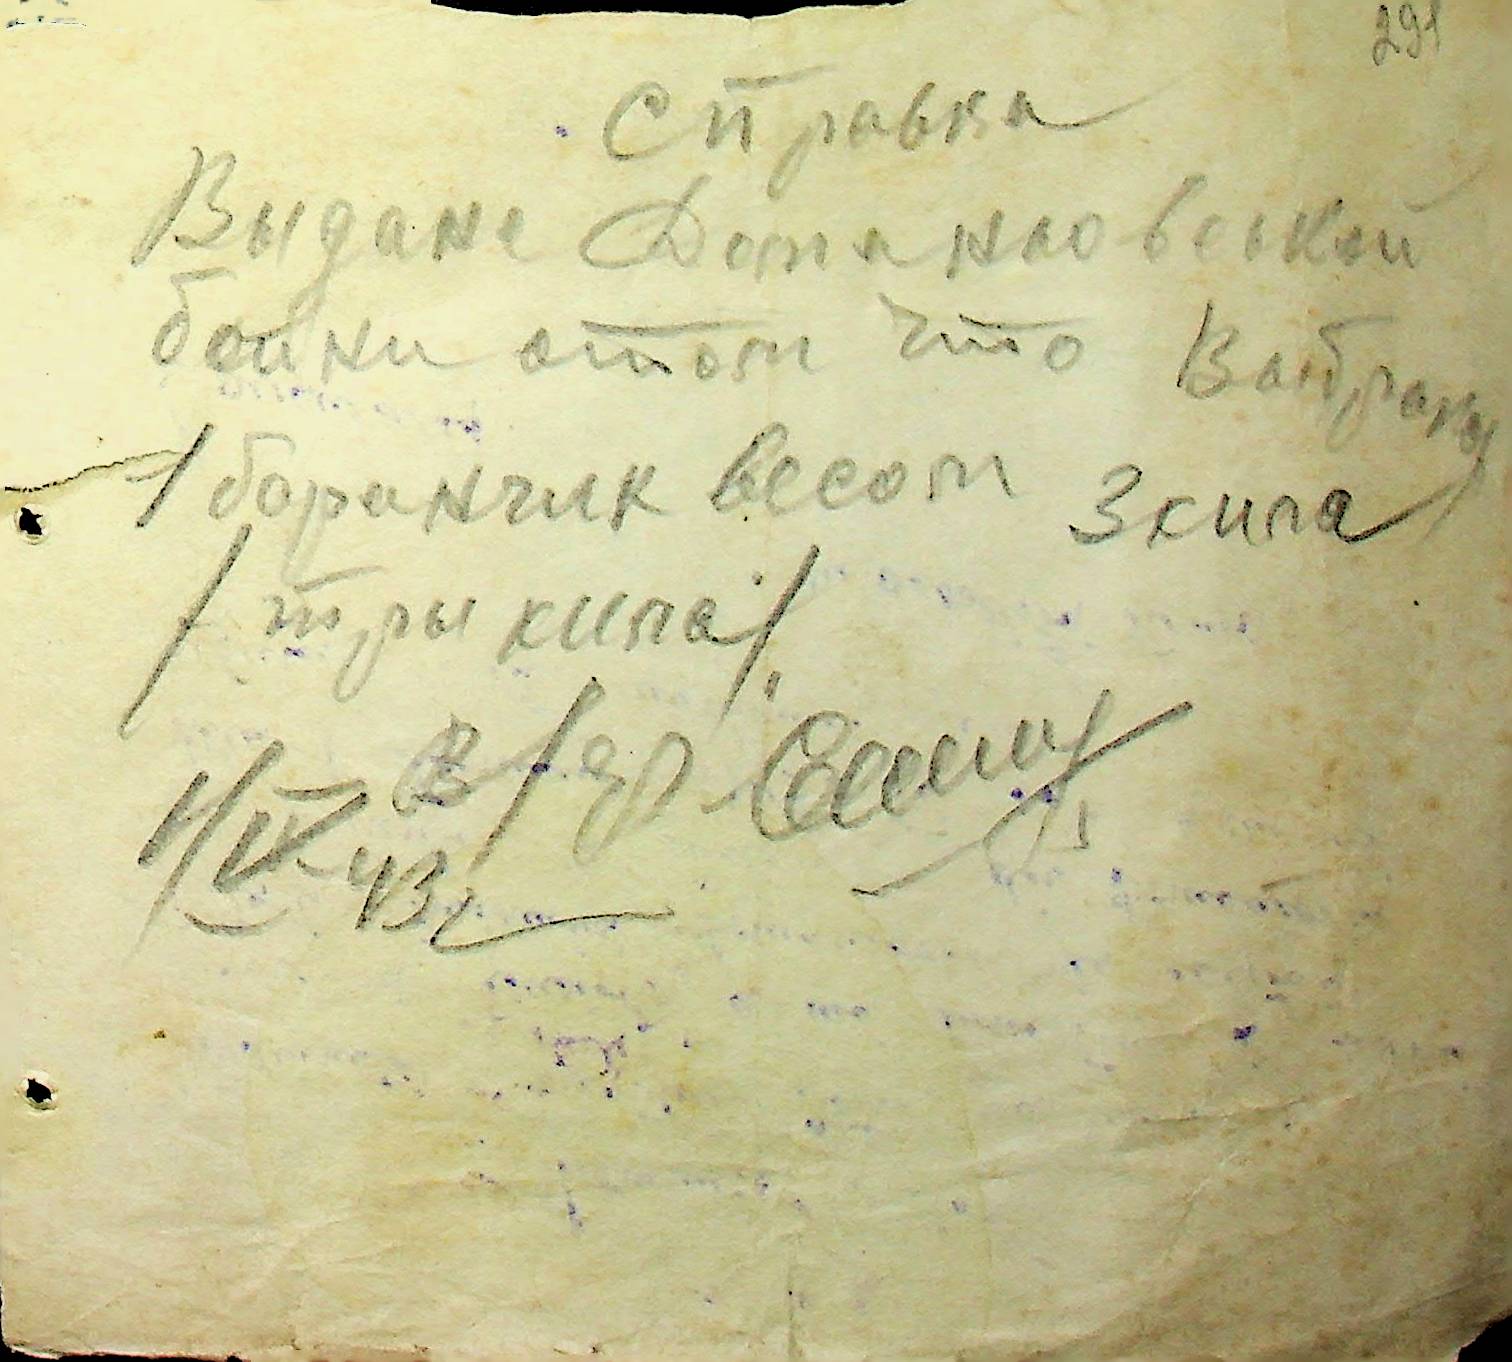 291
Справка
Выдане Доманновськой
бойни отом что Выбраны
1 боранчик весом 3 кила
/ тры кила/.
В/яр
1/IV-43г